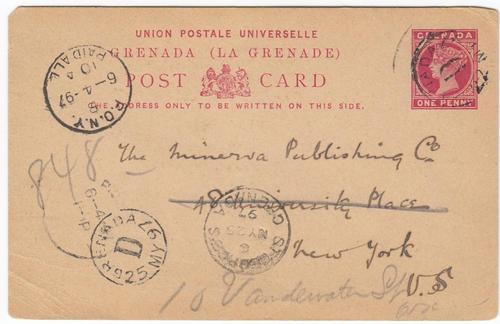 UNION POSTALE UNIVERSELLE
GRENADA (LA GRENADE)
POST CARD
THE ADDRESS ONLY TO BE WRITTEN ON THIS SIDE.
GRENADA
ONE PENNY
P.O.N.Y.
6-4-97
10 A
PAID ALL
848
The Minerva Publishing Co
University Place
New York
U.S
10 Vandewater St
GRENADA
D
MY 25
97
MY 25
97